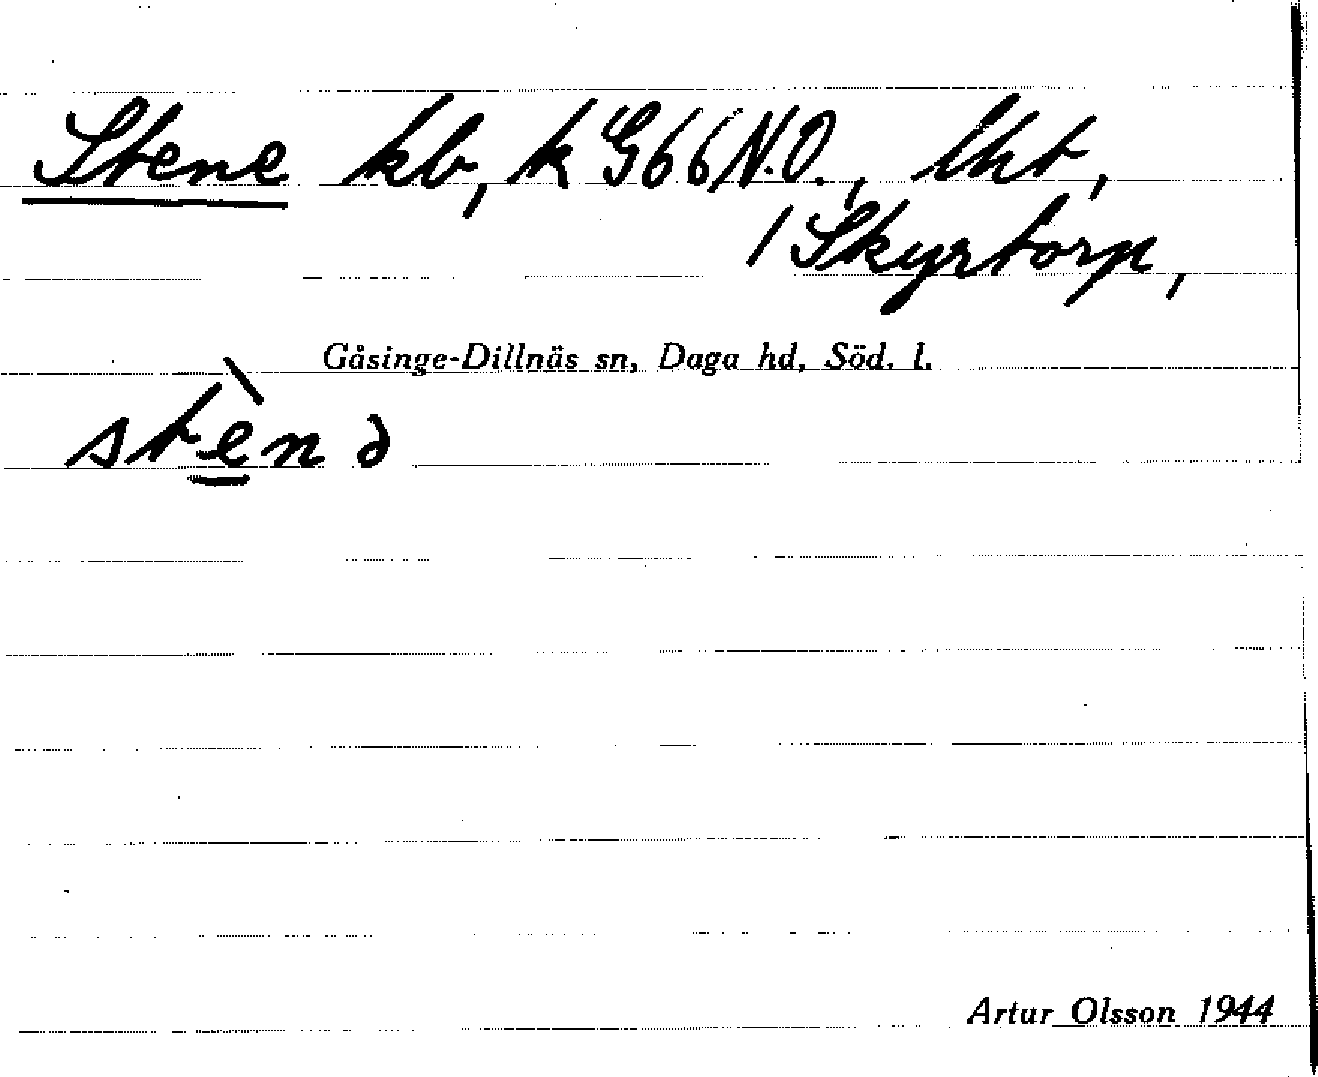 Stene kb, k G66 N.O., lht,
/ Skyrtorp,
Gåsinge-Dillnäs sn, Daga hd, Söd. l.
stè̱nə
Artur Olsson 1944